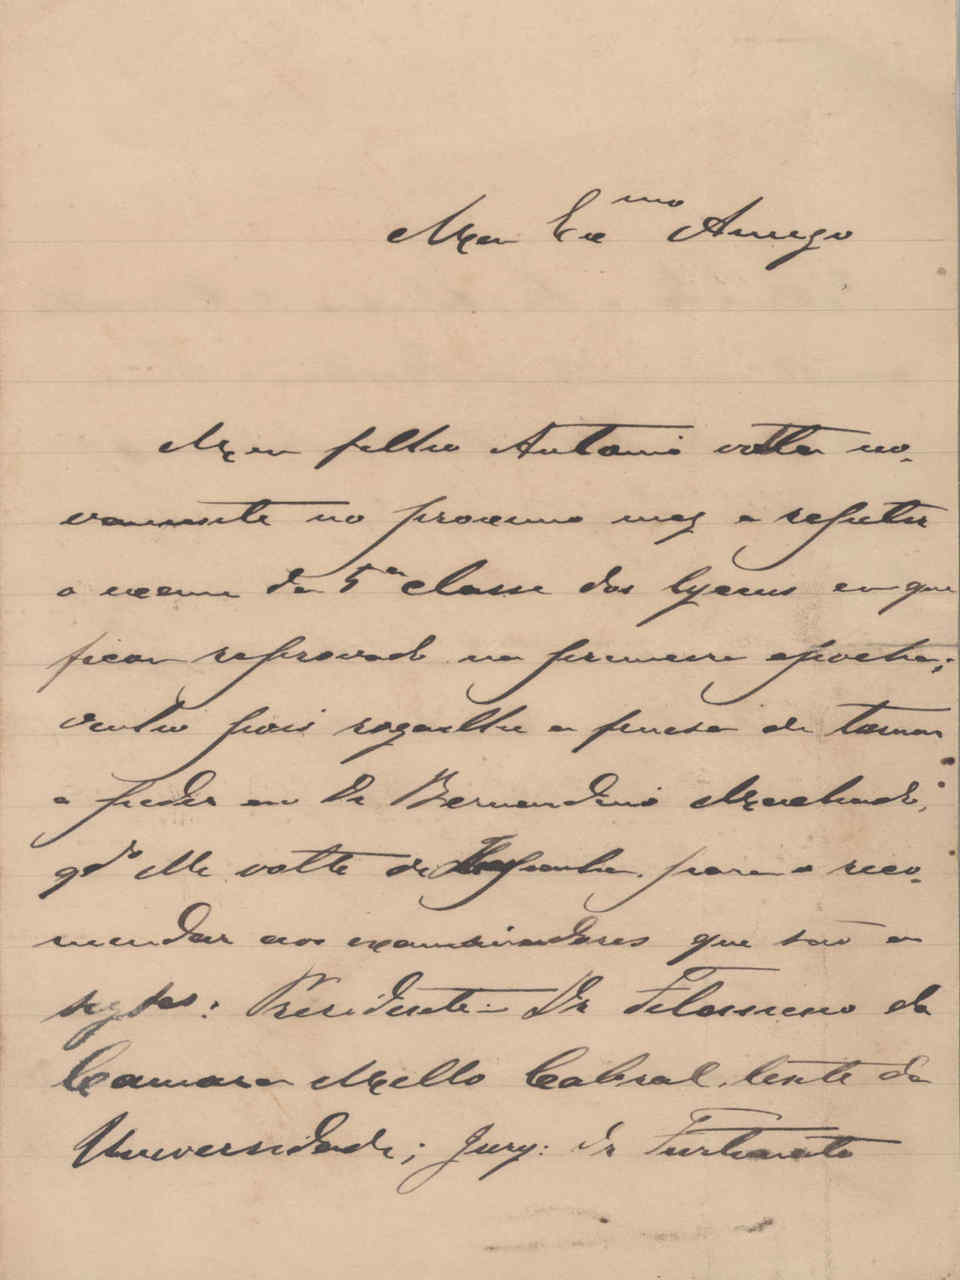 Meu Ex.mo Amigo
Meu filho Antonio volta no-
vamente no proximo mez a repetir
o exame da 5ª classe dos lyceus em que
ficou reprovado na primeira epocha;
venho pois rogar-lhe a fineza de tornar
a pedir ao Dr Bernardino Machado,
qdo elle volte de Hespanha para o reco-
mendar aos examinadores que são os
segtes: Presidente - Dr Filomeno da
Camara Mello Cabral, lente da
Universidade; Jury: Dr Furtunato